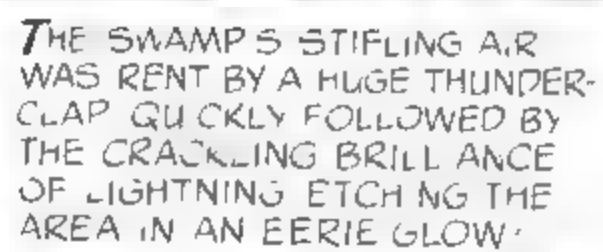 THE SWAMP'S STIFLING AIR
WAS RENT BY A HUGE THUNDER-
CLAP QUICKLY FOLLOWED BY
THE CRACKLING BRILLIANCE
OF LIGHTNING ETCHING THE
AREA IN AN EERIE GLOW!